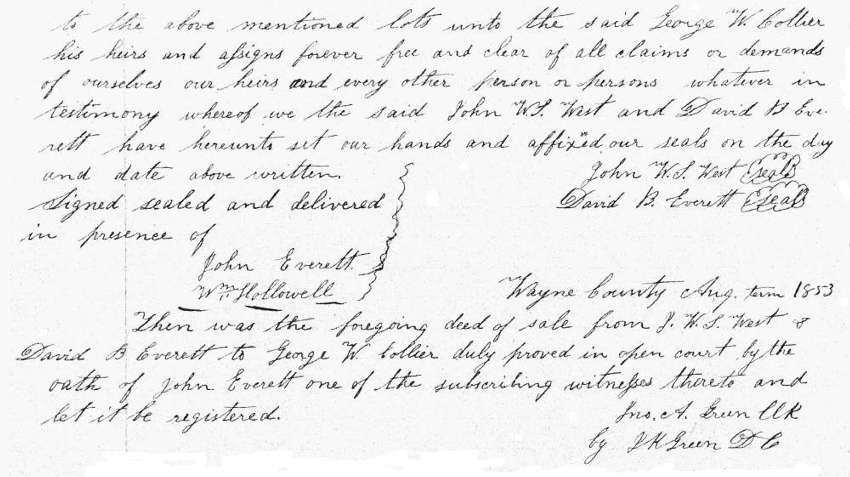 to the above mentioned lots unto the said George W. Collier
his heirs and assigns forever free and clear of all claims or demands
of ourselves our heirs and every other person or persons whatever in
testimony whereof we the said John W.S. West and David B Eve-
rett have hereunto set our hands and affixed our seals on the day
and date above written.
John W. S. West (seal)
Signed sealed and delivered
David B. Everett (seal)
in presence of
John Everett
Wm. Hollowell
Wayne County Aug. term 1853
Then was the foregoing deed of sale from J. W. S. West &
David B Everett to George W. Collier duly proved in open court by the
oath of John Everett one of the subscribing witnesses thereto and
let it be registered.
Jno. A. Green Clk
by J K Green D C